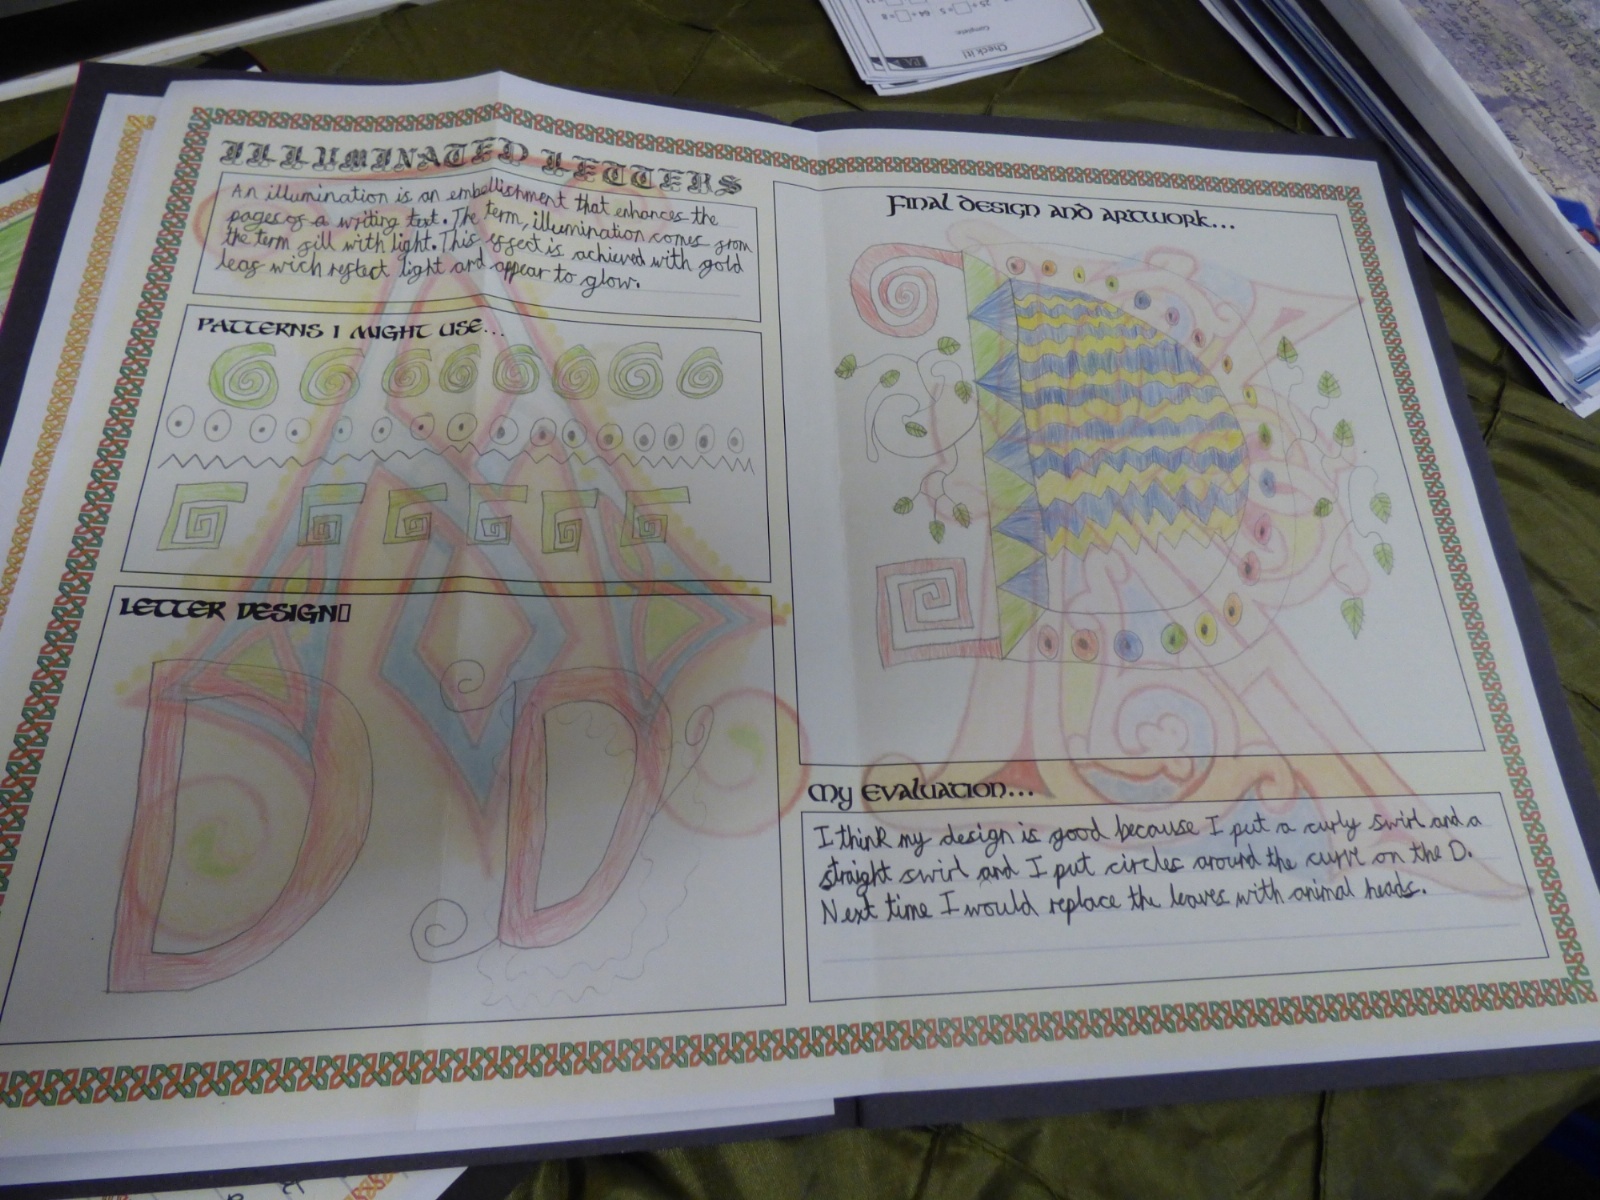 ILLUMINATED LETTERS
An illumination is an embellishment that enhances the
pages of a writing text. The term, illumination comes from
the term fill with light. This effect is achieved with gold
leaf wich reflect light and appear to glow.
PATTERNS I MIGHT USE...
LETTER DESIGN
Final design and artwork...
My Evaluation...
I think my design is good because I put a curly swirl and a
straight swirl and I put circles around the curve on the D.
Next time I would replace the leaves with animal heads.
Check it!
Complete.